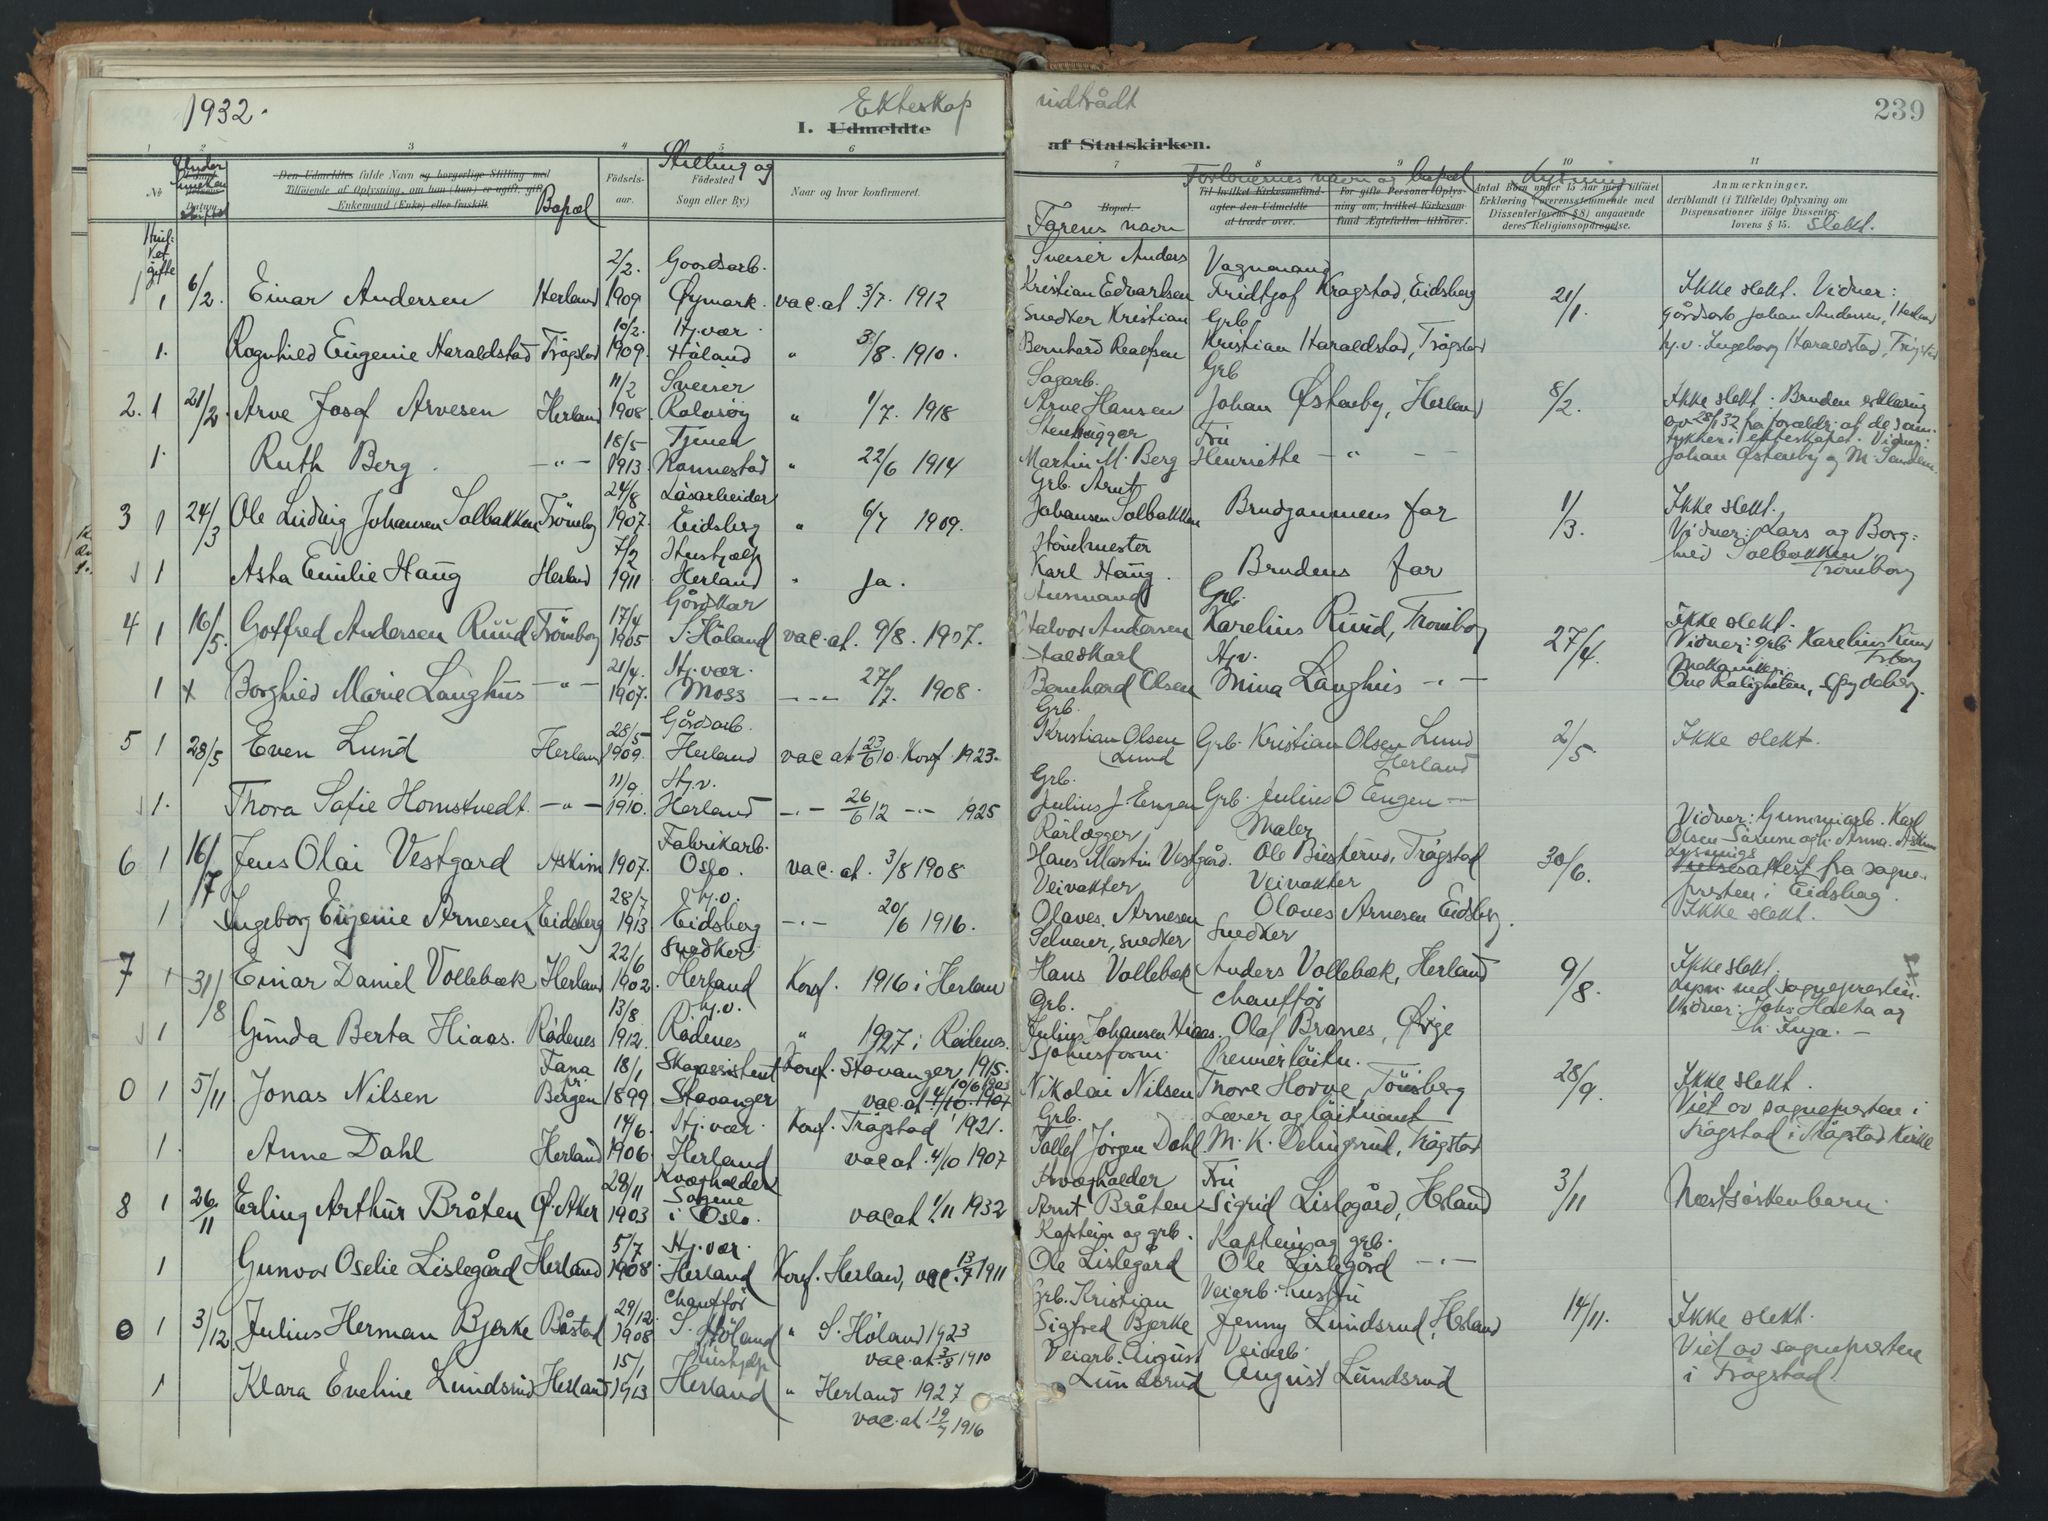 1932.
Ekteskap
I. Udmeldte
indtrådt
af Statskirken.
239
1 2 3 4 5 6 7 8 9 10 11
No
Datum
Den Udmeldtes fulde Navn og borgerlige Stilling med
Tilføiende af Oplysning, om han (hun) er ugift, gift,
Enkemand (Enke) eller fraskilt.
Bopæl
Fødsels-
aar.
Stilling og
Fødested
Sogn eller By)
Naar og hvor konfirmeret.
Bopæl.
Farens navn
Forloverens navn og bopæl
Til hvilket Kirkesamfund
agter den Udmeldte
at træde over.
For gifte Personer Oplys-
ning om, hvilket Kirkesam-
fund Ægtefællen tilhører.
Lysning
Antal Børn under 15 Aar med tilføiet
Erklæring (overensstemmende med
Dissenterlovens § 8) angaaende
deres Religionsopdragelse.
Anmærkninger,
deriblandt (i Tilfælde) Oplysning om
Dispensationer ifølge Dissenter-
lovens § 15. Slekt.
1 1 6/2. Einar Andersen Herland 2/2. 1909 Gaardsarb. Øymark. vac. at. 3/7. 1912 Sveiser Anders Kristian Edvardsen Vognmand Fridtjof Kragstad, Eidsberg 21/1. Ikke slekt. Vidner: gårdsarb Johan Andersen, Herland
1. Ragnhild Eugenie Haraldstad Trøgstad 10/2. 1909. Hj.vær. Høland " 3/8. 1910. Snedker Kristian Bernhard Realfsen Grb. Kristian Haraldstad, Trøgstad hj.v. Ingeborg Haraldstad, Trøgstad
2. 1 21/2. Arve Josef Arvesen Herland 11/2 1908. Sveiser Rakkestad " 1/7. 1918 Sagarb. Arne Hansen Grb Johan Østenby, Herland 8/2. Ikke slekt. Bruden erklæring av 28/1 32 fra foreldr. at de sam-
tykker i ekteskapet. Vidner:
Johan Østenby og M.
1. Ruth Berg. —"— 18/5 1913. Tjener " 22/6 1914 Stenhugger Martin M. Berg Fru Henriette —"—
3 1 24/3 Ole Ludvig Johansen Solbakken Trømborg 24/8 1907. Løsarbeider Eidsberg " 6/7 1909. Grb. Arnt Johansen Solbakken Brudgommens far 1/3. Ikke slekt.
Vidner: Lars og Borg-
hild Solbakken, Trømborg
1 Asta Emilie Haug Herland 7/2 1911 Hushjælp Herland " Ja. Karl Haug. Brudens far
4 1 16/5. Gotfred Andersen Ruud Trømborg 17/4 1905 Gårdskar S. Høland vac. at. 9/8. 1907. Husmand Halvor Andersen Grb. Karelius Ruud, Trømborg 27/4. Ikke slekt.
Vidner: grb Karelius Ruud
1 x Borghild Marie Langhus —"— 21/4. 1907. Hj.vær. Moss —"— 27/7. 1908. Staldkarl Bernhard Olsen Hj.v. Mina Langhus —"—
5 1 28/5 Even Lund Herland 28/5 1909. Gårdsarb. Herland vac at 23/6 10. Konf 1923. Grb. Kristian Olsen Lund Grb. Kristian Olsen Lund Herland 2/5 Ikke slekt.
1. Thora Sofie Homstvedt. —"— 11/9. 1910. Hj.v. Herland —"— 26/6 12 —"— 1925 Grb. Julius J. Engen Grb. Julius O Engen —"—
6 1 16/7 Jens Olai Vestgard Askim 1907. Fabrikarb. Oslo. vac. at. 3/8 1908 Rørlægger Hans Martin Vestgård. Maler Ole Buskerud, Trøgstad 30/6. Vidner: Gummiarb. Karl
Olsen
Lysnings
attest fra sogne-
presten i Eidsberg.
Ikke slekt.
1 Ingeborg Eugenie Arnesen Eidsberg 28/7 1913 hj.v. Eidsberg —"— 20/6 1916. Veivakter Olaves Arnesen Veivakter Olaves Arnesen Eidsberg.
7 1 31/8 Einar Daniel Vollebæk Herland 22/6 1902. Snedker Herland Konf. 1916 i Herland Selveier, snedker Hans Vollebæk Snedker Anders Vollebæk, Herland 9/8. Ikke slekt.
Lysn. ved sognepresten.
Vidner: Johs Haeta og
h. Inga. —
1 Gunda Berta Hiaas. Rødenes 13/8 1912. hj.v. Rødenes " 1927 i Rødenes. Grb. Julius Johansen Hiaas. chauffør Olaf Branes,
0 1 5/11 Jonas Nilsen Fana pr Bergen 18/1 1899 Skogassistent Stavanger Konf. Stavanger 1915. vac. at 10/6 1903 Nikolai Nilsen Premierløitn. Thore Horve Tønsberg 28/9. Ikke slekt.
Viet av sognepresten i
Trøgstad i Trøgstad Kirke
1. Anne Dahl Herland 14/6. 1906 Hj.vær. Herland Konf. Trøgstad 1921. vac at. 4/10 1907 Grb. Tollef Jørgen Dahl Lærer og løitnant M. K. Trøgstad
8 1 26/11 Erling Arthur Bråten Ø. Aker 28/11 1903 Kvægholder Sagene i Oslo. vac at 1/11 1932 Kvægholder Arnt Bråten Fru Sigrid Lislegård, Herland 3/11 Næstsøskenbarn.
1 Gunvor Oselie Lislegård Herland 5/7. 1908. Hj.vær. Herland Konf. Herland, vac. 13/7 1911 Kaptein og grb. Ole Lislegård Kaptein og grb. Ole Lislegård —"—
0 1 3/12. Julius Herman Bjerke Båstad 29/12. 1908 Chauffør S. Høland " S. Høland 1923 vac. at. 3/8 1910 Grb. Kristian Sigfred Bjerke Veiarb. hustru Jenny Lundsrud, Herland 14/11. Ikke slekt.
Viet av sognepresten
i Trøgstad.
1 Klara Eveline Lundsrud Herland 15/1 1913 Hushjelp Herland " Herland 1927 vac. at. 19/7 1916 Veiarb. August Lundsrud Veiarb. August Lundsrud